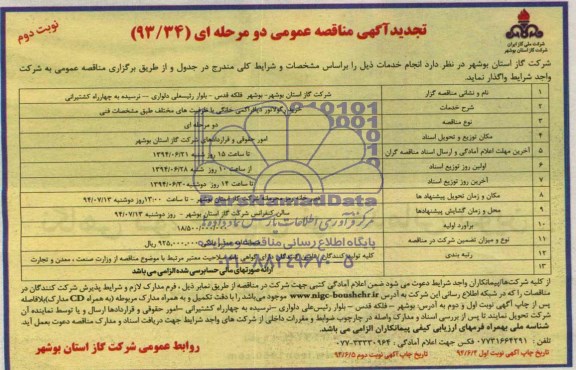 نوبت دوم
تجدید آگهی مناقصه عمومی دو مرحله ای (۹۳/۳۴)
شرکت ملی گاز ایران
شرکت گاز استان بوشهر
شرکت گاز استان بوشهر در نظر دارد انجام خدمات ذیل را براساس مشخصات و شرایط کلی مندرج در جدول و از طریق برگزاری مناقصه عمومی به شرکت
واجد شرایط واگذار نماید.
۱ نام و نشانی مناقصه گزار شرکت گاز استان بوشهر- بوشهر فلکه قدس - بلوار رئیسعلی دلواری – نرسیده به چهارراه کشتیرانی
۲ شرح خدمات خرید رگولاتور خانگی با ظرفیت های مختلف طبق مشخصات فنی
۳ نوع مناقصه دو مرحله ای
۴ مکان توزیع و تحویل اسناد امور حقوقی و قراردادهای شرکت گاز استان بوشهر
۵ آخرین مهلت اعلام آمادگی و ارسال اسناد مناقصه گران تا ساعت ۱۵ روز شنبه ۱۳۹۴/۰۶/۲۱
۶ اولین روز توزیع اسناد از ساعت ۱۰ روز شنبه ۱۳۹۴/۰۶/۲۸
۷ آخرین روز توزیع اسناد تا ساعت ۱۴ روز دوشنبه ۱۳۹۴/۰۶/۳۰
۸ مکان و زمان تحویل پیشنهاد ها شرکت گاز استان بوشهر - تا ساعت ۱۳:۰۰ روز دوشنبه ۹۴/۰۷/۱۳
۹ محل و زمان گشایش پیشنهادها سالن کنفرانس شرکت گاز استان بوشهر - روز دوشنبه ۹۴/۰۷/۱۳
۱۰ برآورد اولیه
۱۱ نوع و میزان تضمین شرکت در مناقصه ۹۲۵,۰۰۰,۰۰۰ ریال
۱۲ رتبه بندی کلیه تولید صلاحیت معتبر مرتبط با موضوع مناقصه از وزارت صنعت ، معدن و تجارت
۱۳ ارائه صورتهای مالی حسابرسی شده الزامی می باشد
ParsNamadData
مرکز فرآوری اطلاعات پارس نماد داده ها
پایگاه اطلاع رسانی مناقصه و مزایده
۰۲۱-۸۸۳۴۹۶۷۰-۵
از کلیه شرکت‌ها/پیمانکاران واجد شرایط دعوت می شود ضمن اعلام آمادگی کتبی جهت شرکت در مناقصه از طریق نمابر ذیل ، فرم مدارک لازم و شرایط پذیرش شرکت کنندگان در
مناقصات را که در شبکه اطلاع رسانی این شرکت به آدرس www.nigc-boushehr.ir موجود می‌باشد را با دقت تکمیل و به همراه مدارک مربوطه (به همراه CD مدارک)بلافاصله
پس از چاپ آگهی نوبت اول و دوم به آدرس بوشهر - فلکه قدس - بلوار رئیس‌علی دلواری –نرسیده به چهارراه کشتیرانی –امور حقوقی و قراردادها ارسال و یا توسط نماینده آن
شرکت تحویل نمایند،تا پس از بررسی اسناد و مدارک واصله در چارچوب ضوابط و مقررات داخلی از شرکت های واجد شرایط جهت دریافت اسناد و مدارک مناقصه دعوت بعمل آید.
شناسه ملی بهمراه فرمهای ارزیابی کیفی پیمانکاران الزامی می باشد.
تلفن : ۰۷۷۳۱۶۶۴۲۹۱ فکس جهت اعلام آمادگی : ۳۳۳۳۰۹۶۴-۰۷۷
تاریخ چاپ آگهی نوبت اول ۹۴/۶/۴ تاریخ چاپ آگهی نوبت دوم ۹۴/۶/۵
روابط عمومی شرکت گاز استان بوشهر